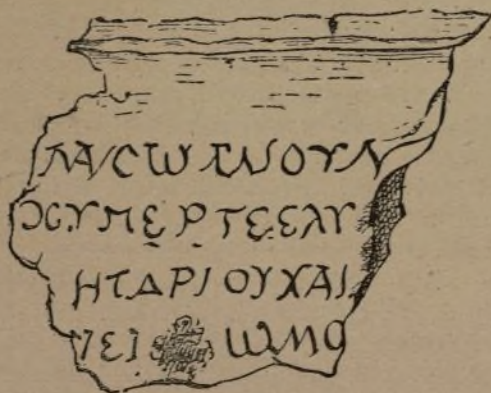 ΠΑΝCѠΑΝΟΥΝ
ΟCΥΠΕΡΤΕΕΛΥ
ΗΤΔΡΙΟΥΧΑΙ
ΓΕΙ ѠΜΟ